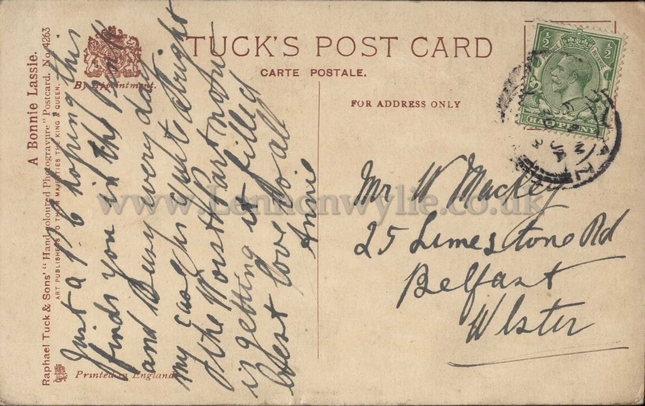 TUCK'S POST CARD
CARTE POSTALE.
By Appointment.
FOR ADDRESS ONLY
½ ½
HALFPENNY
A Bonnie Lassie.
Raphael Tuck & Sons' "Hand-coloured Photogravure" Postcard, No. 4263
ART PUBLISHERS TO THEIR MAJESTIES THE KING & QUEEN.
Printed in England
Just a P.C. hoping this
finds you in the Pink
and Busy every day
my cough quite alright
the worst part now
is getting it filled
Best love to all
Annie
Mr W Mackey
25 Limestone Rd
Belfast
Ulster
www.Lennonwylie.co.uk